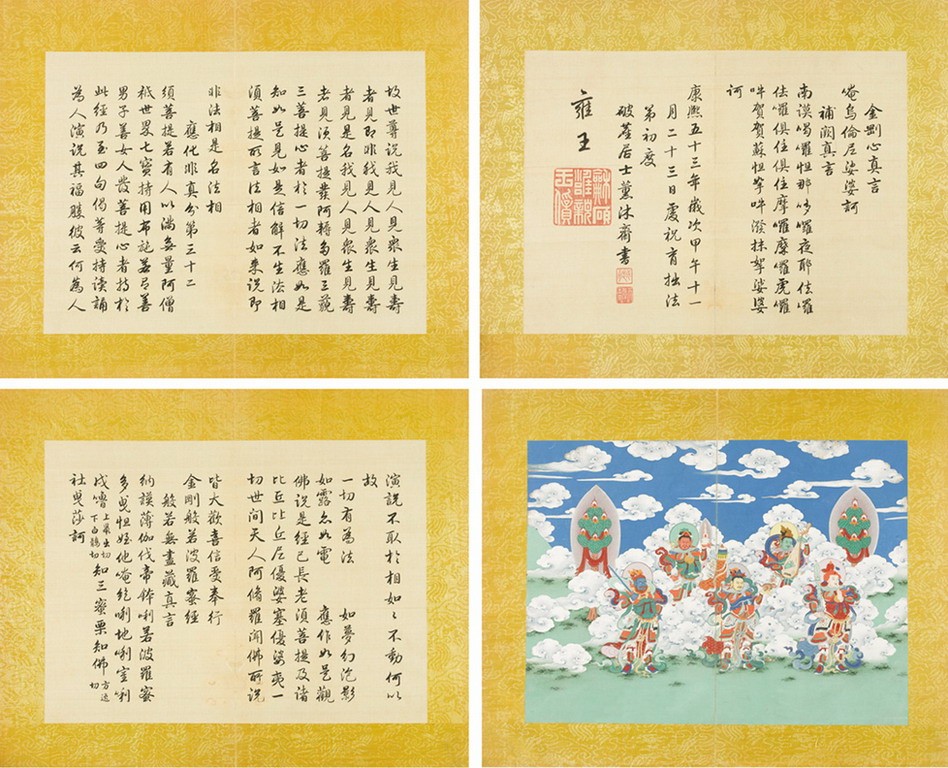 故世尊說我見人見眾生見壽
者見即非我見人見眾生見壽
者見是名我見人見眾生見壽
者見須菩提發阿耨多羅三藐
三菩提心者於一切法應如是
知如是見如是信解不生法相
須菩提所言法相者如來說即
非法相是名法相
應化非真分第三十二
須菩提若有人以滿無量阿僧
祇世界七寶持用布施若有善
男子善女人發菩提心者持於
此經乃至四句偈等受持讀誦
為人演說其福勝彼云何為人
演說不取於相如〻不動何以
故
一切有為法 如夢幻泡影
如露亦如電 應作如是觀
佛說是經已長老須菩提及諸
比丘比丘尼優婆塞優婆夷一
切世間天人阿脩羅聞佛所說
皆大歡喜信受奉行
金剛般若波羅蜜經
般若無盡藏真言
納謨薄伽伐帝鉢唎若波羅蜜
多曳怛姪他唵紇唎地唎室唎
戍嚕知三蜜栗知佛
社曳莎訶
金剛心真言
唵烏倫尼娑婆訶
補闕真言
南謨喝囉怛那哆囉夜耶佉囉
佉囉俱住俱住摩囉摩囉虎囉
吽賀賀蘇怛拏吽潑抹拏娑婆
訶
康熙五十三年歲次甲午十一
月二十三日慶祝育拙法
第初度
破塵居士薰沐齋書
雍王